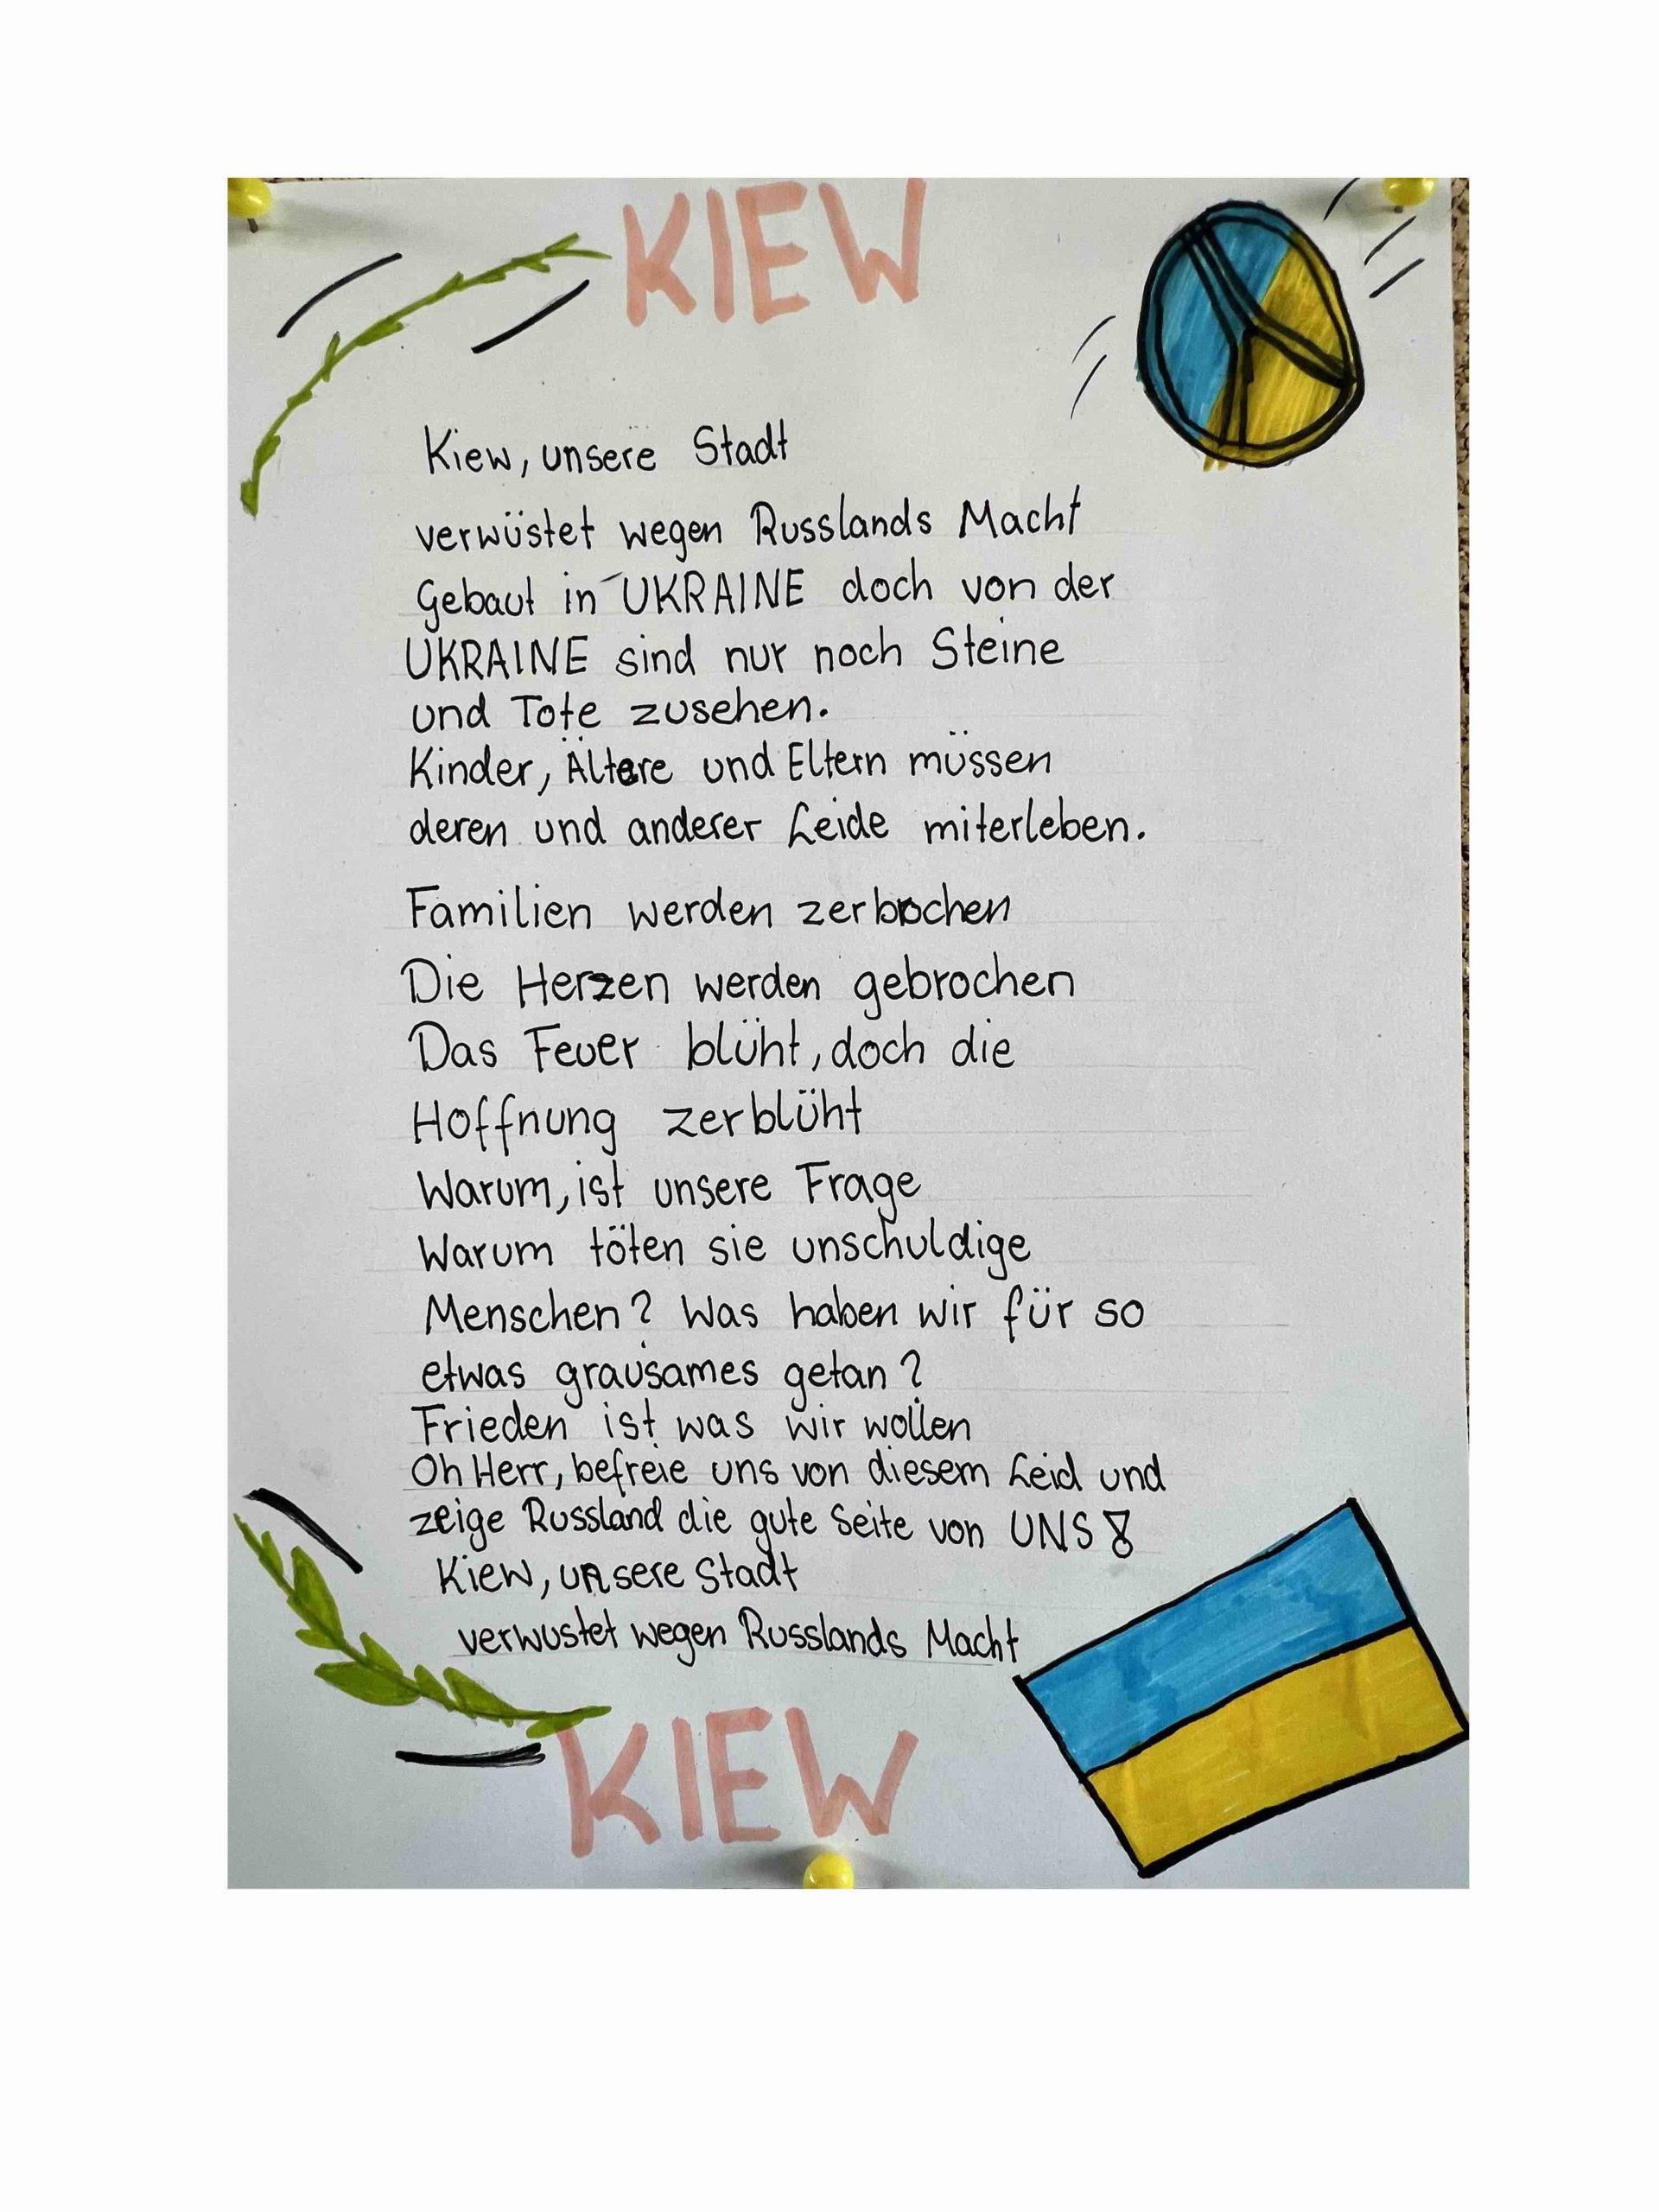 KIEW
Kiew, unsere Stadt
verwüstet wegen Russlands Macht
Gebaut in UKRAINE doch von der
UKRAINE sind nur noch Steine
und Tote zusehen.
Kinder, Ältere und Eltern müssen
deren und anderer Leide miterleben.
Familien werden zerbrochen
Die Herzen werden gebrochen
Das Feuer blüht, doch die
Hoffnung zerblüht
Warum, ist unsere Frage
Warum töten sie unschuldige
Menschen? Was haben wir für so
etwas grausames getan?
Frieden ist was wir wollen
Oh Herr, befreie uns von diesem Leid und
zeige Russland die gute Seite von UNS!
Kiew, unsere Stadt
verwustet wegen Russlands Macht
KIEW